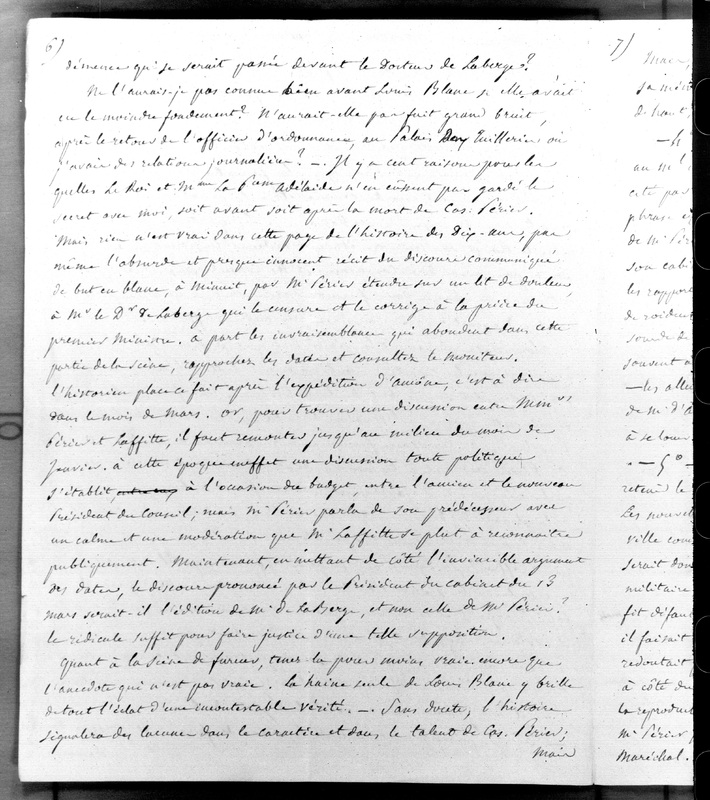 6)
démence qui se serait passée devant le Docteur de Laberge?
Ne l'aurais-je pas connue bien avant Louis Blanc si elle avait
eu le moindre fondement? N'aurait-elle pas fait grand bruit,
après le retour de l'officier d'ordonnance, au Palais des Tuilleries où
j'avais des relations journalières? —. Il y a cent raisons pour les
quelles Le Roi et Mme La Psse Adélaïde n'en eussent pas gardé le
secret avec moi, soit avant soit après la mort de Cas. Périer.
Mais rien n'est vrai dans cette page de l'histoire des Dix-ans, pas
même l'absurde et presque innocent récit du discours communiqué
de but en blanc, à minuit, par Mr Périer étendu sur un lit de douleur,
à Mr le Dr de Laberge qui le censure et le corrige à la prière du
premier Ministre. à part les invraisemblances qui abondent dans cette
partie de la scène, rapprochez les dates et consultez le moniteur.
l'historien place ce fait après l'expédition d'ancône, c'est à dire
dans le mois de Mars. or, pour trouver une discussion entre Mrs
Périer et Laffitte, il faut remonter jusqu'au milieu du mois de
Janvier. à cette époque en effet une discussion toute politique
s'établit à l'occasion du budget, entre l'ancien et le nouveau
Président du Conseil; mais Mr Périer parla de son prédécesseur avec
un calme et une modération que Mr Laffitte se plut à reconnaître
publiquement. Maintenant, en mettant de côté l'invincible argument
des dates, le discours prononcé par le Président du Cabinet du 13
mars serait-il l'édition de Mr de LaBerge, et non celle de Mr Périer?
le ridicule suffit pour faire justice d'une telle supposition.
Quant à la scène de fureur, tenez-la pour moins vraie encore que
l'anecdote qui n'est pas vraie. la haine seule de Louis Blanc y brille
de tout l'éclat d'une incontestable vérité. —. Sans doute, l'histoire
signalera des lacunes dans le caractère et dans le talent de Cas. Périer;
Mais
7)
Mais,
de haut,
— h
au m
cite pas
phrase
de Mr Pér
son cabi
les rapport
de
souvent à
— les allu
de Mr d'A
à se louer
— 5° —
retenu le
Les nouvel
ville com
serait don
militaire
fit défau
il faisait
redoutait
à côté du
la reproduct
Mr Périer
Maréchal.